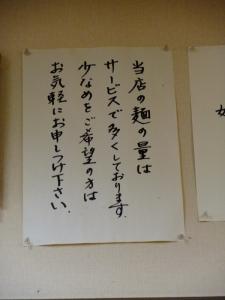 当店の麺の量は
サービスで多くしております。
少なめをご希望の方は
お気軽にお申しつけ下さい。